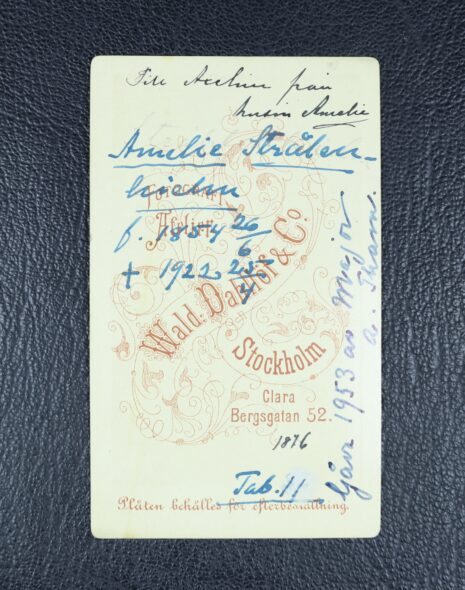 Till Avelin från
kusin Amelie
Amelie Strålen-
hielm
f. 1854 26/6
+ 1922 25/4
Atelier
Wald. Dahllöf & Co.
Stockholm
Clara
Bergsgatan 52.
1876
Gåva 1953 av Major
a. Tham.
Tab. 11
Plåten behålles för efterbeställning.